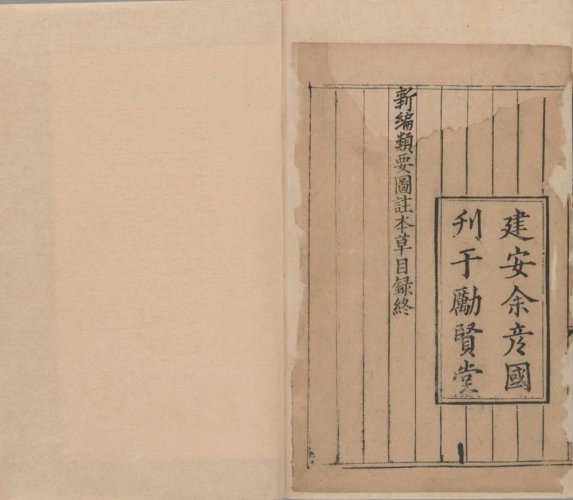 建安余彦國
刋于勵賢堂
新編類要圖註本草目録終